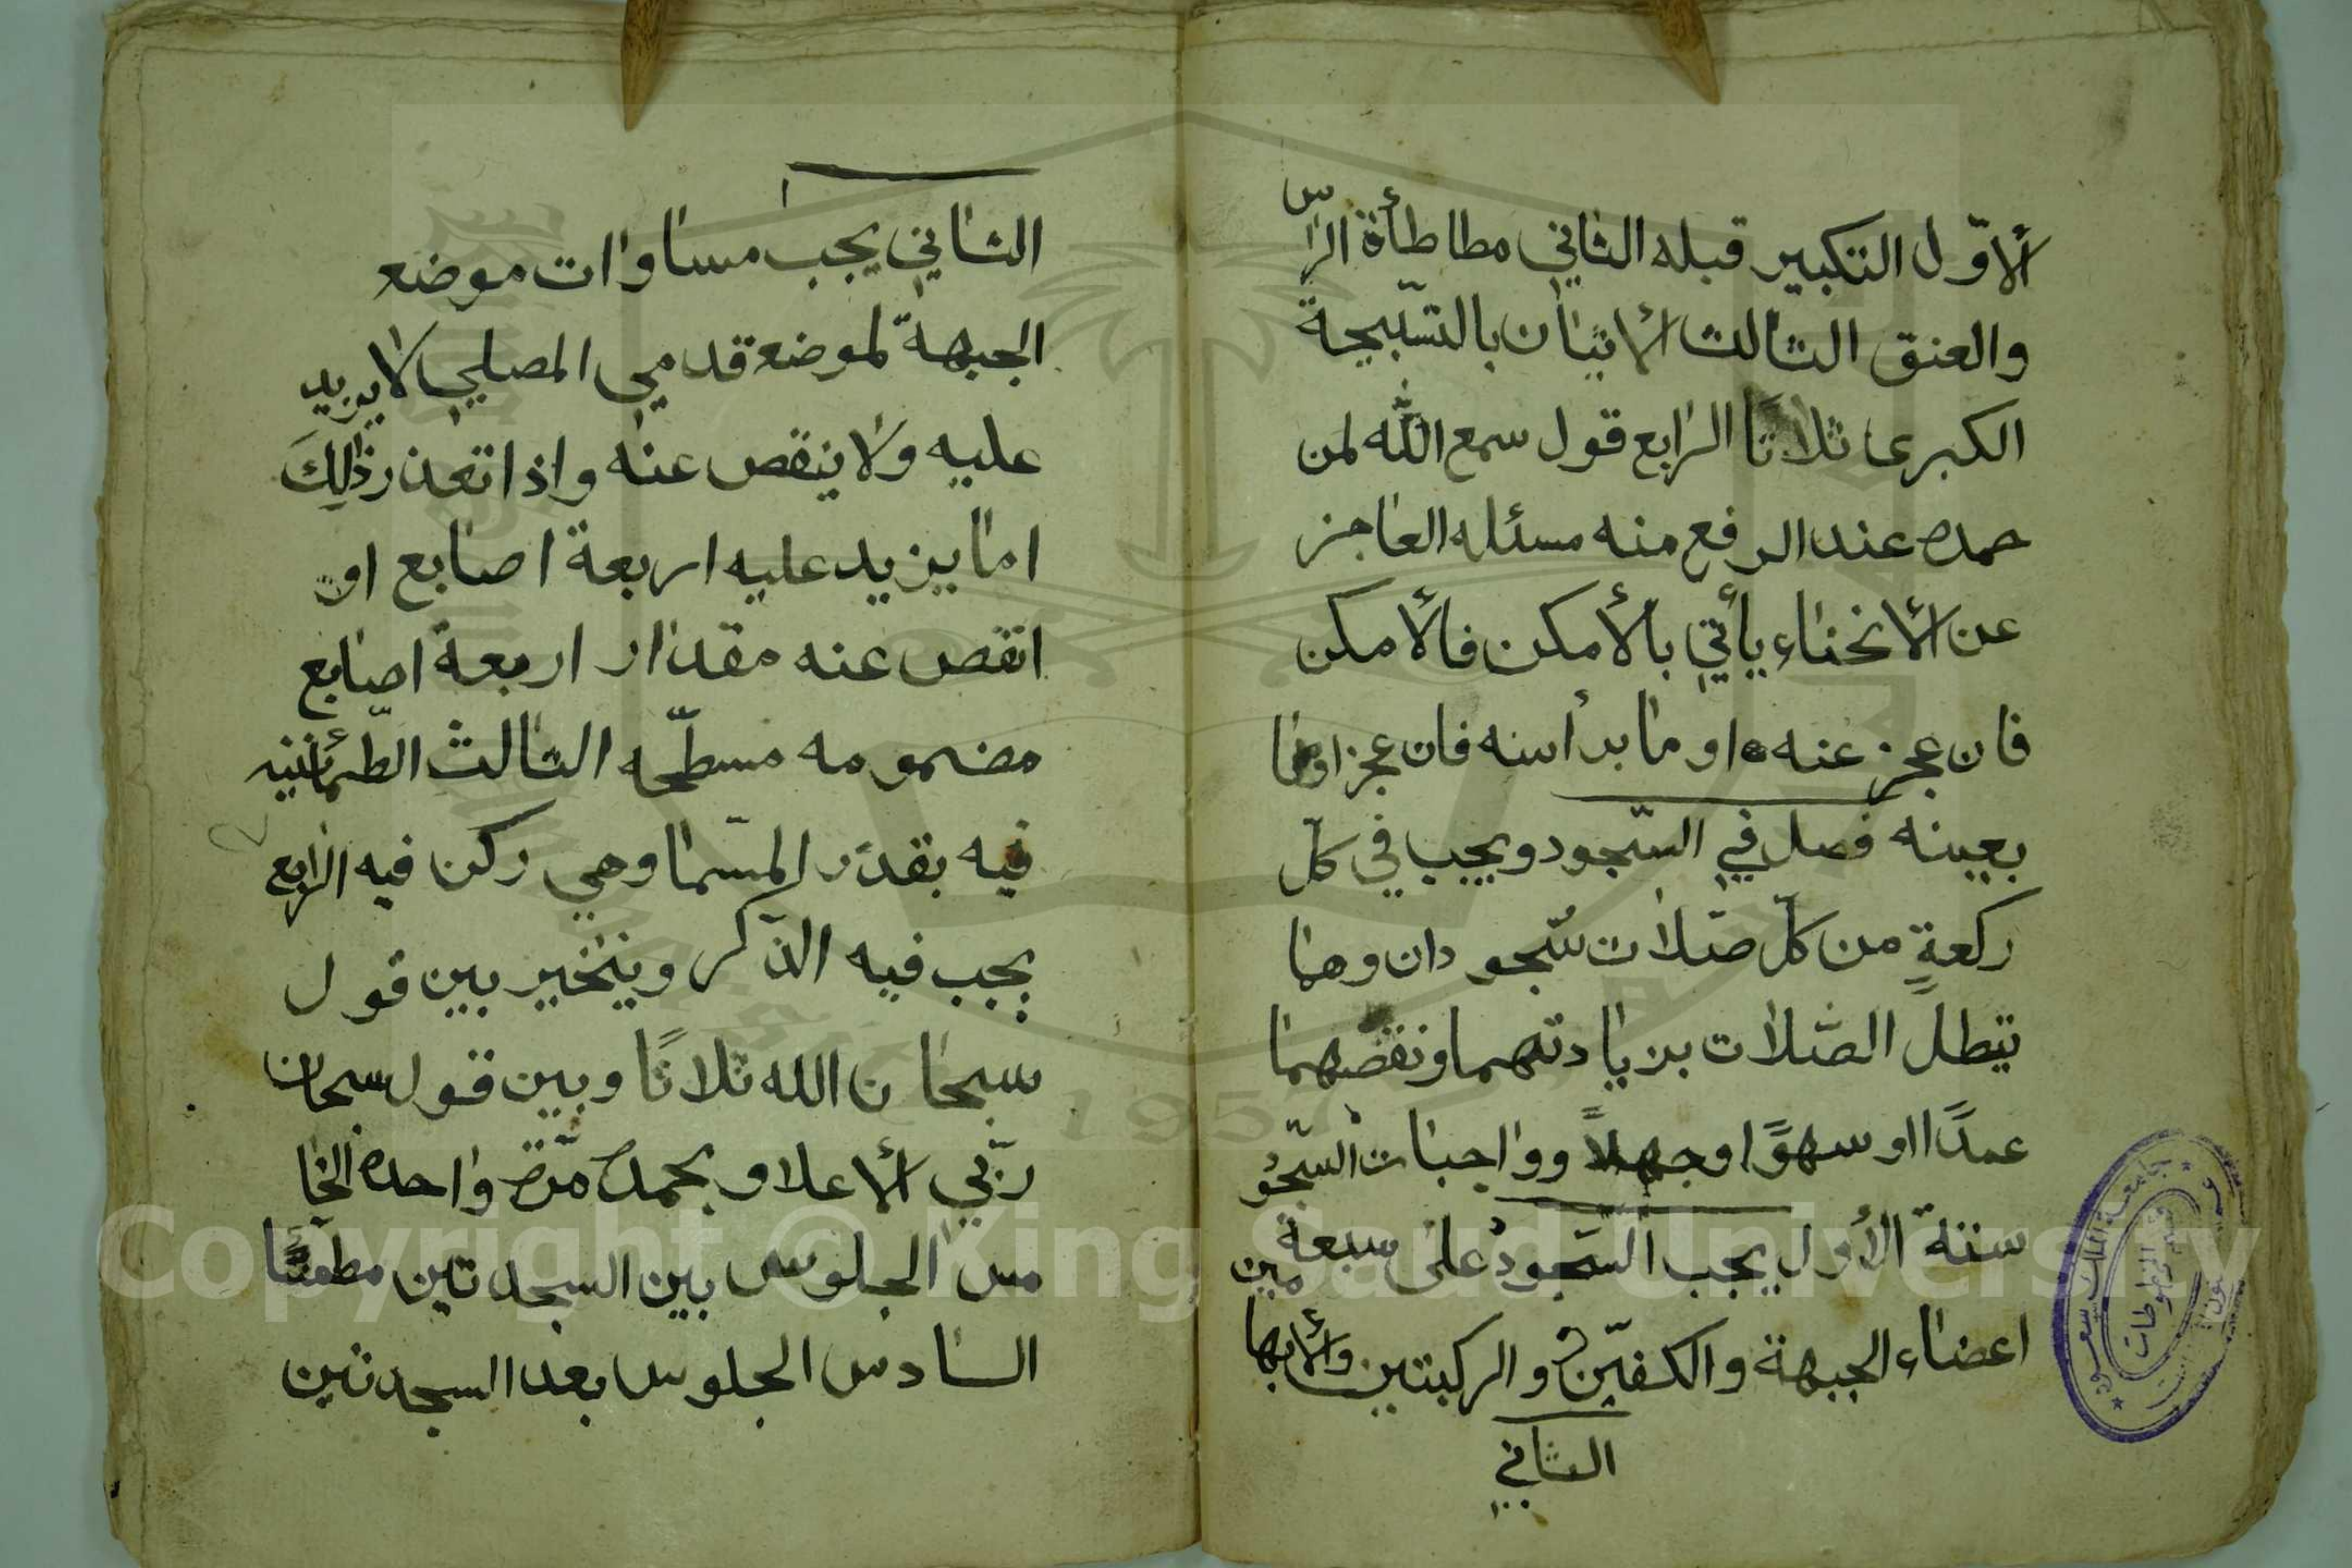 ألاوّل التكبير قبله الثاني مطاطأة الراس
والعنق الثالث ألاتيان بالتسّبيحة
الكبرى ثلاثا الرابع قول سمع الله لمن
حمده عند الرفع منه مسئله العاجز
عن ألانحناء يأتي بالأمكن فالأمكن
فان عجز عنه اوما برأسه فان عجز اوما
بعينه فصل في السّجود ويجب في كلّ
ركعةٍ من كلّ صلات سُجودان وهما
تبطل الصّلات بزيادتهما ونقصهما
عمدًا او سهوًا او جهلاً وواجبات السّجُو
ستة الأول يجب السّجودُ على سبعة
اعضاء الجبهة والكفيّن والركبتين وألابها
مين
الثاني
الثاني يجب مساوات موضع
الجبهة لموضع قدمي المصلي لا يزيد
عليه ولا ينقص عنه واذا تعذر ذالكَ
اما يزيد عليه اربعة اصابع او
انقص عنه مقدار اربعة اصابع
مضمومه مسطّحه الثالث الطّمئانينه
فيه بقدر المسّما وهي ركن فيه الرابع
يجب فيه الذّكر ويتخير بين قول
سبحان الله ثلاثًا وبين قول سبحان
ربّي ألاعلا وبحمده مرّة واحده الخا
مس الجلوس بين السجدتين مطمئنًا
السادس الجلوس بعد السجدتين
جامعة الملك سعود
قسم المخطوطات
1957
Copyright © King Saud University